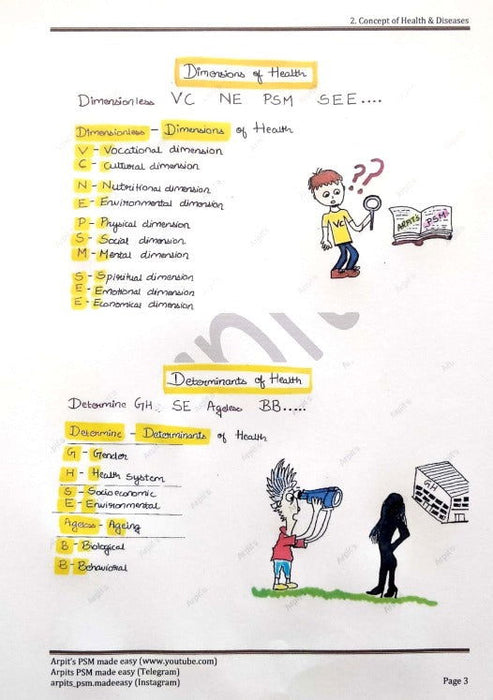 2. Concept of Health & Diseases
Dimensions of Health
Dimensionless VC NE PSM SEE....
Dimensionless - Dimensions of Health
V - Vocational dimension
C - Cultural dimension
N - Nutritional dimension
E - Environmental dimension
P - Physical dimension
S - Social dimension
M - Mental dimension
S - Spiritual dimension
E - Emotional dimension
E - Economical dimension
??
VC
ARPITS PSM
Determinants of Health
Determine GH SE Ageless BB.....
Determine - Determinants of Health
G - Gender
H - Health System
S - Socioeconomic
E - Environmental
Ageless - Ageing
B - Biological
B - Behavioral
GH
Arpit's PSM made easy (www.youtube.com)
Arpits PSM made easy (Telegram)
arpits_psm.madeeasy (Instagram)
Page 3